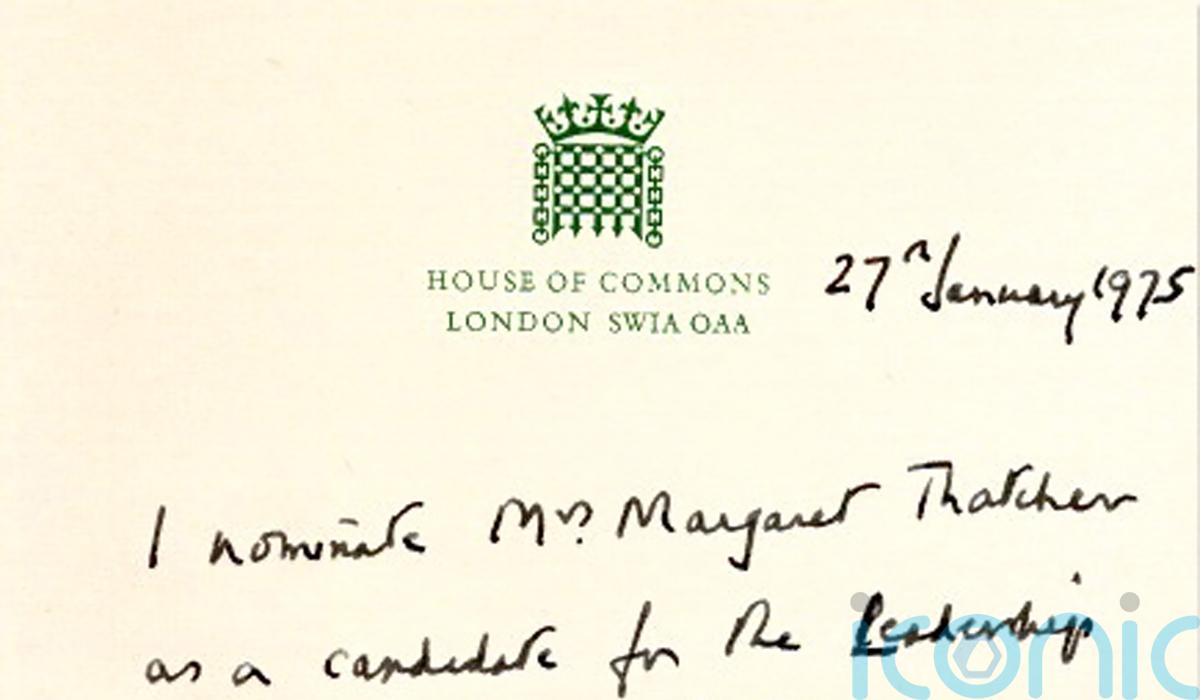 HOUSE OF COMMONS
LONDON SW1A 0AA
27th January 1975
I nominate Mrs. Margaret Thatcher
as a candidate for the Leadership
iconic